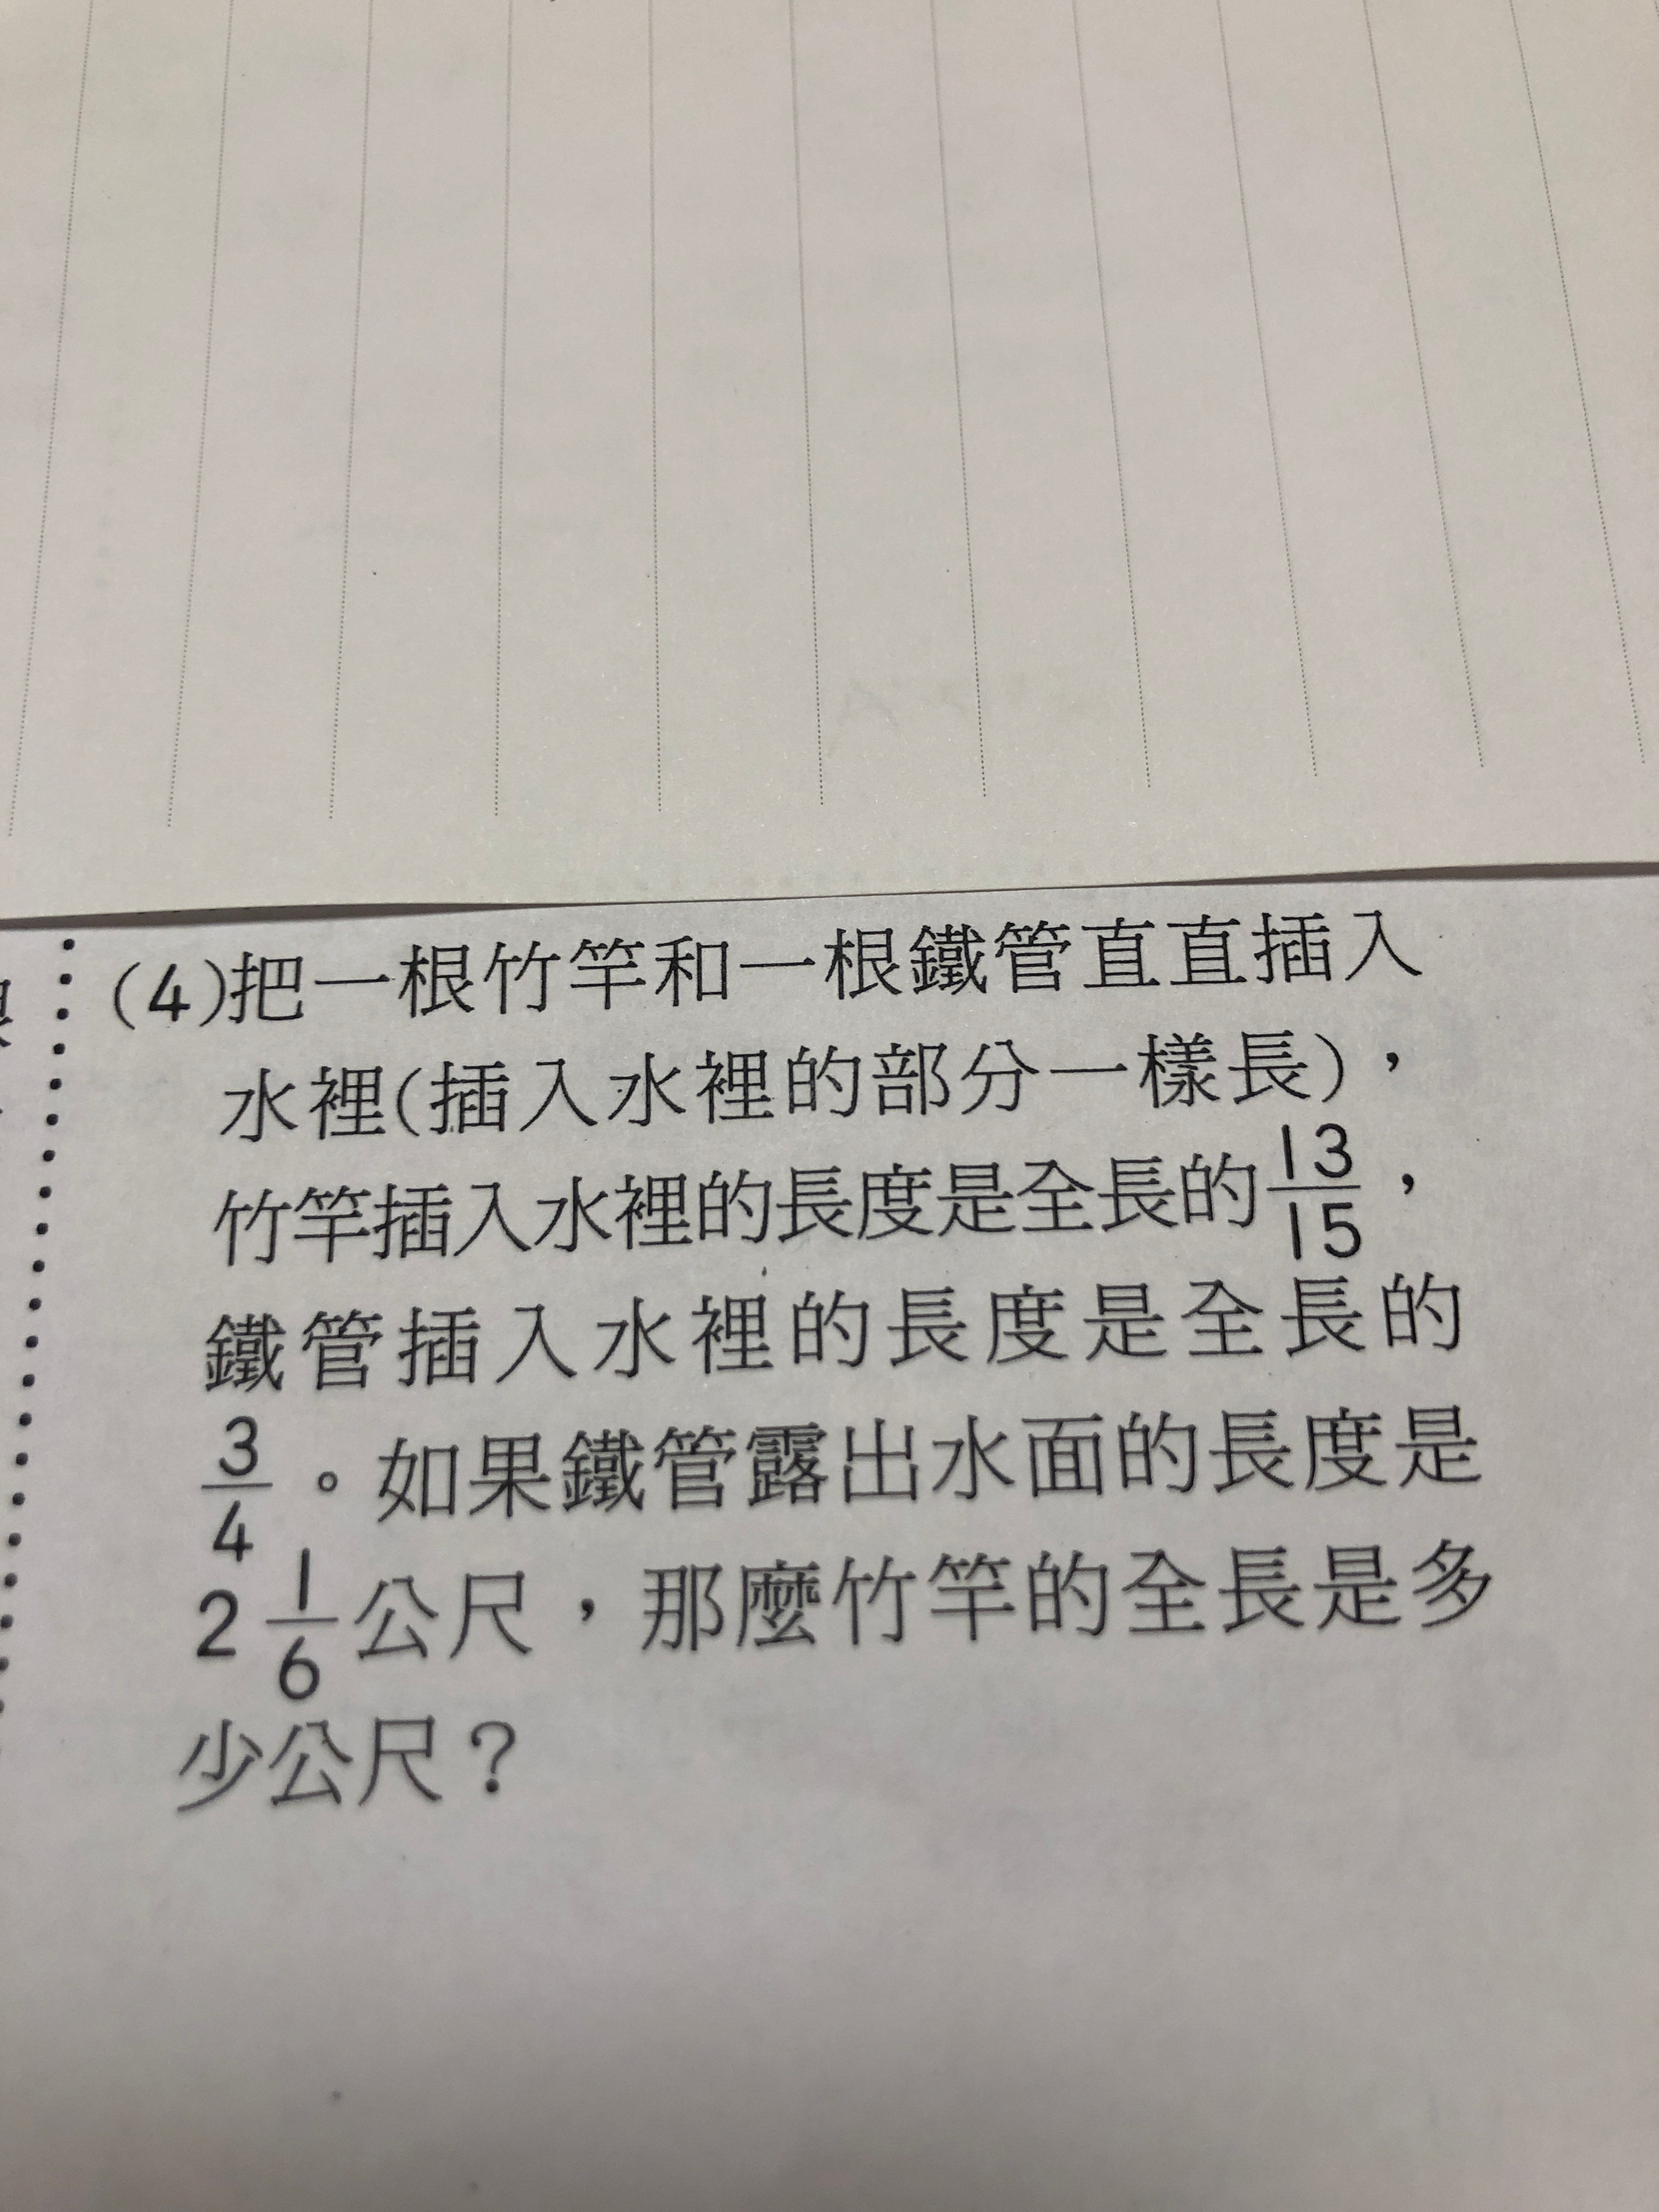 (4)把一根竹竿和一根鐵管直直插入
水裡(插入水裡的部分一樣長),
竹竿插入水裡的長度是全長的13/15,
鐵管插入水裡的長度是全長的
3/4。如果鐵管露出水面的長度是
2 1/6公尺,那麼竹竿的全長是多
少公尺?